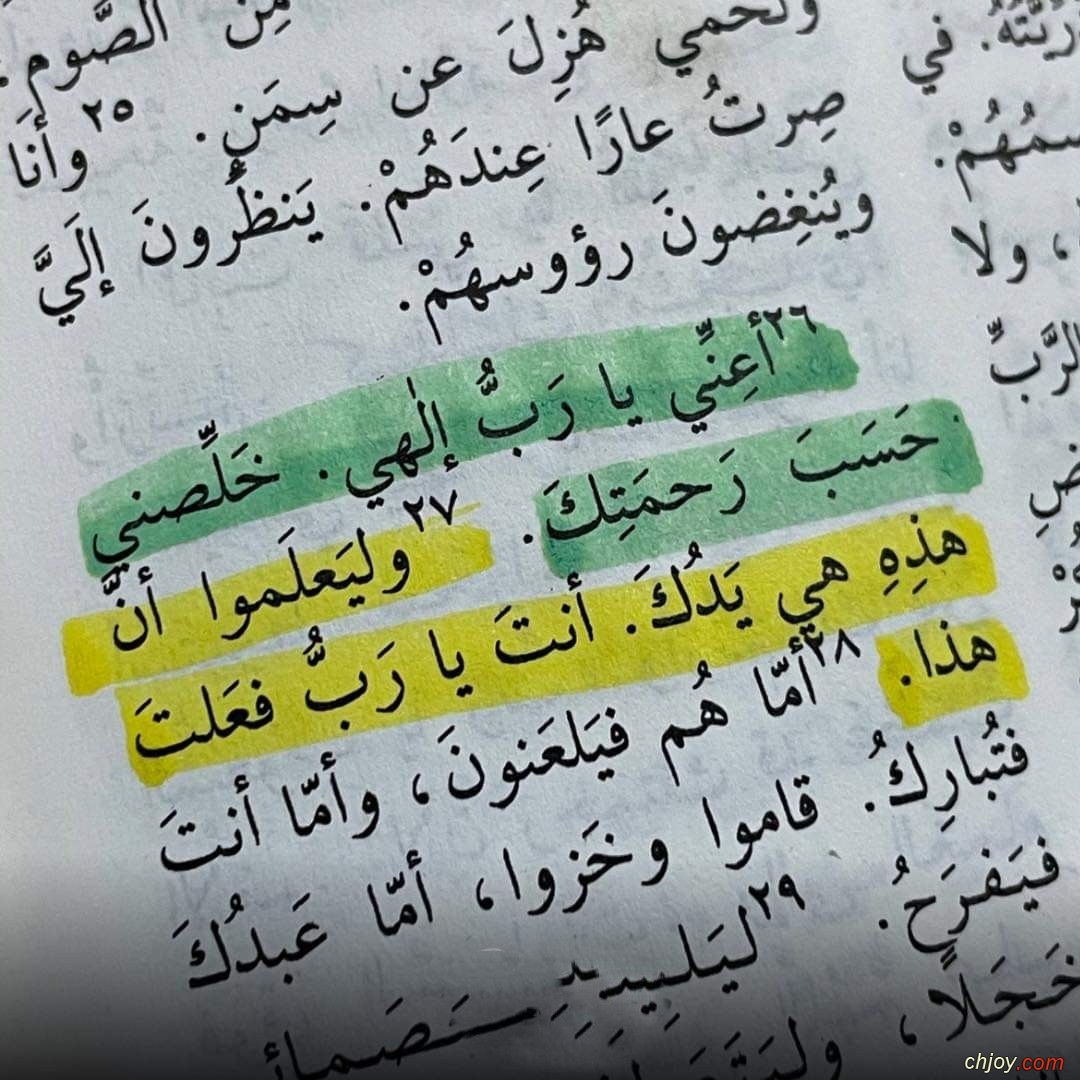 ولَحمي هُزِلَ عن سِمَنٍ. ٢٥ وأنَا
صِرتُ عارًا عِندَهُمْ. يَنظُرونَ إلَيَّ
ويُنغِضونَ رؤوسهُمْ.
٢٦ أعِنّي يا رَبُّ إلٰهي. خَلِّصني
حَسَبَ رَحمَتِكَ. ٢٧ وليَعلَموا أنَّ
هذِهِ هي يَدُكَ. أنتَ يا رَبُّ فعَلتَ
هذا. ٢٨ أمّا هُم فيَلعَنونَ، وأمّا أنتَ
فتُبارِكُ. قاموا وخَزوا، أمّا عَبدُكَ
فيَفرَحُ. ٢٩ ليَلبِس خُصَمائي
خَجَلًا،
مِنَ الصَّومِ
في
ولا
الرَّبِّ
chjoy.com